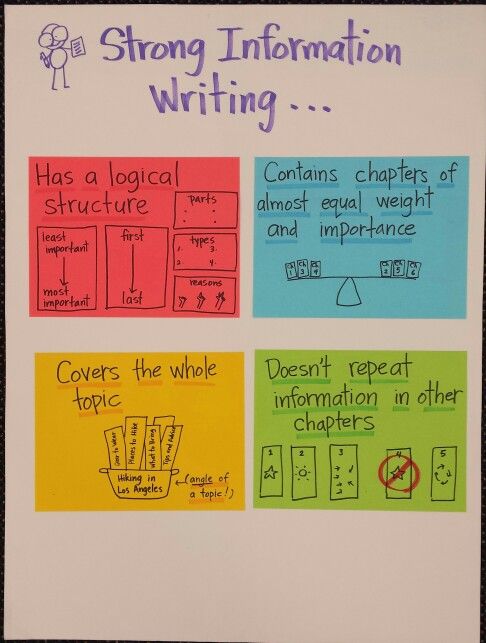 Strong Information
Writing ...
Has a logical
structure
parts
least
important
most
important
first
last
types
1. 3.
2. 4.
reasons
Contains chapters of
almost equal weight
and importance
Ch 1
Ch 3
Ch 4
Ch 2
Ch 5
Ch 6
Covers the whole
topic
Gear to Wear
Places to Hike
What to Bring
Tips and Advice
Hiking in
Los Angeles
(angle of
a topic!)
Doesn't repeat
information in other
chapters
1 2 3 4 5